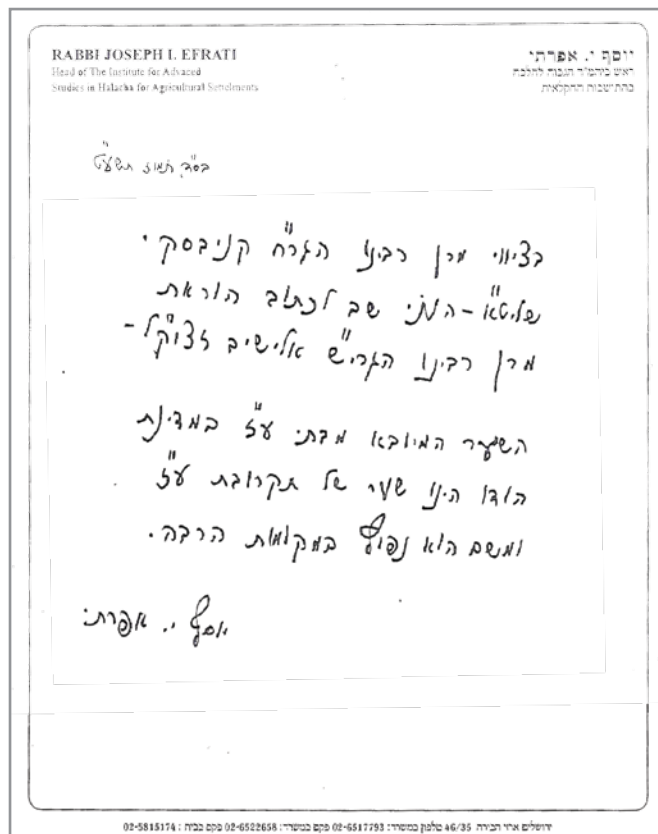 RABBI JOSEPH I. EFRATI
Head of The Institute for Advaced
Studies in Halacha for Agricultural Setelments
יוסף י. אפרתי
ראש ביהמ"ד הגבוה להלכה
בהתישבות החקלאית
בס"ד, תמוז תשע"ט
בציווי מרן רבינו הגר"ח קניבסקי
שליט"א - הנני שב לכתוב הוראת
מרן רבינו הגרי"ש אלישיב זצוק"ל -
השער המיובא מבתי ע"ז במדינת
הודו הינו שער של תקרובת ע"ז
ומשם הוא נפוץ במקומות הרבה.
יוסף י. אפרתי
ירושלים ארזי הבירה 46/35 טלפון במשרד: 02-6517793 פקס במשרד: 02-6522658 פקס בבית: 02-5815174